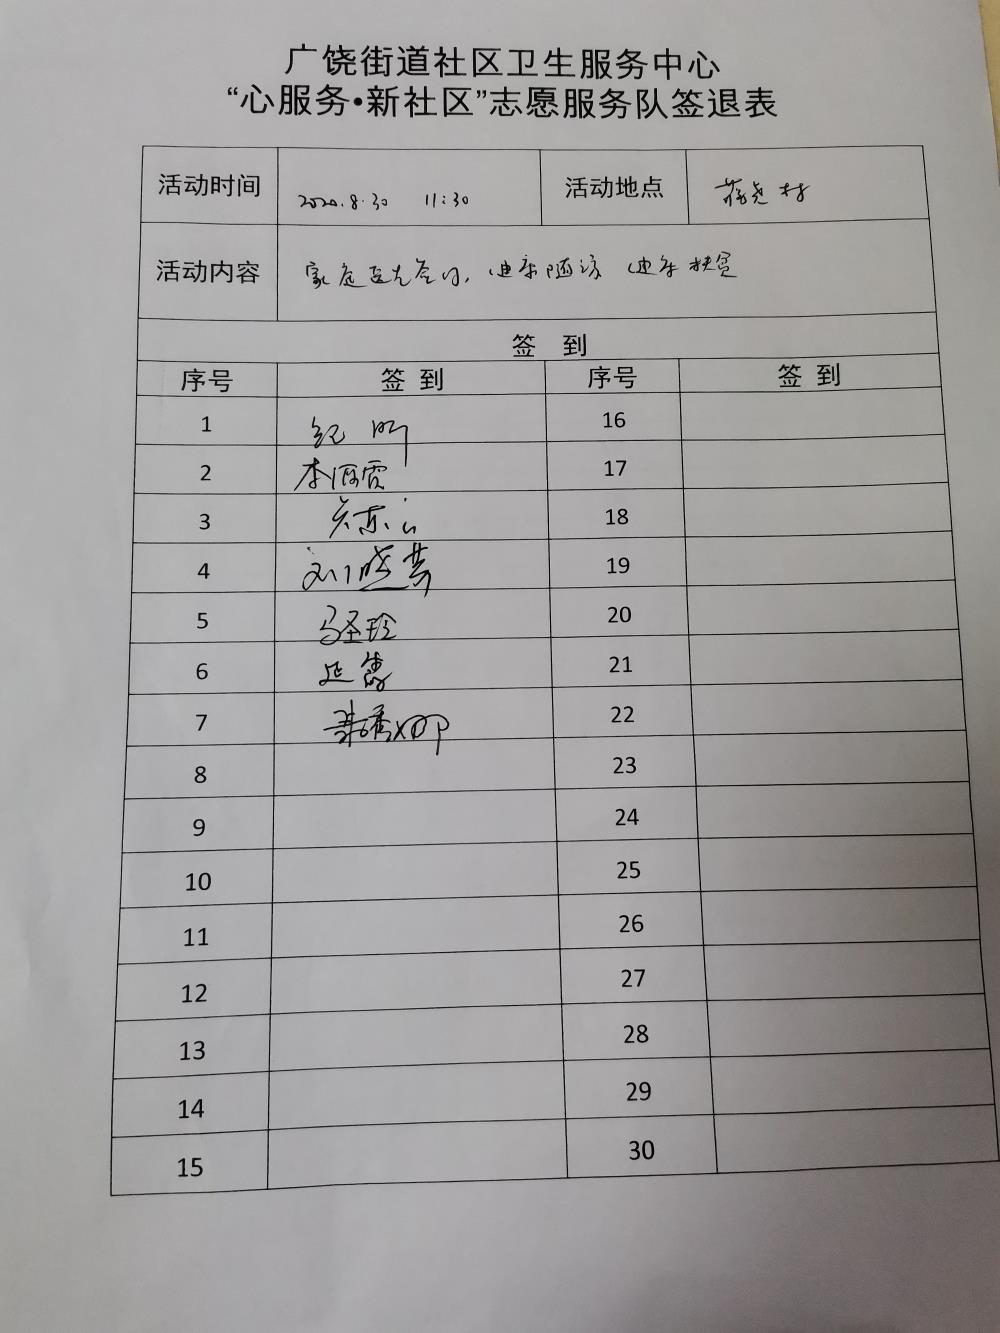 广饶街道社区卫生服务中心
“心服务•新社区”志愿服务队签退表
活动时间 2020.8.30 11:30 活动地点 蒋尧村
活动内容 家庭医生签约, 健康随访 健康扶贫
签 到
序号 签到 序号 签到
1 纪昕 16
2 李丽霞 17
3 18
4 刘晓燕 19
5 马圣玲 20
6 延隽 21
7 22
8 23
9 24
10 25
11 26
12 27
13 28
14 29
15 30